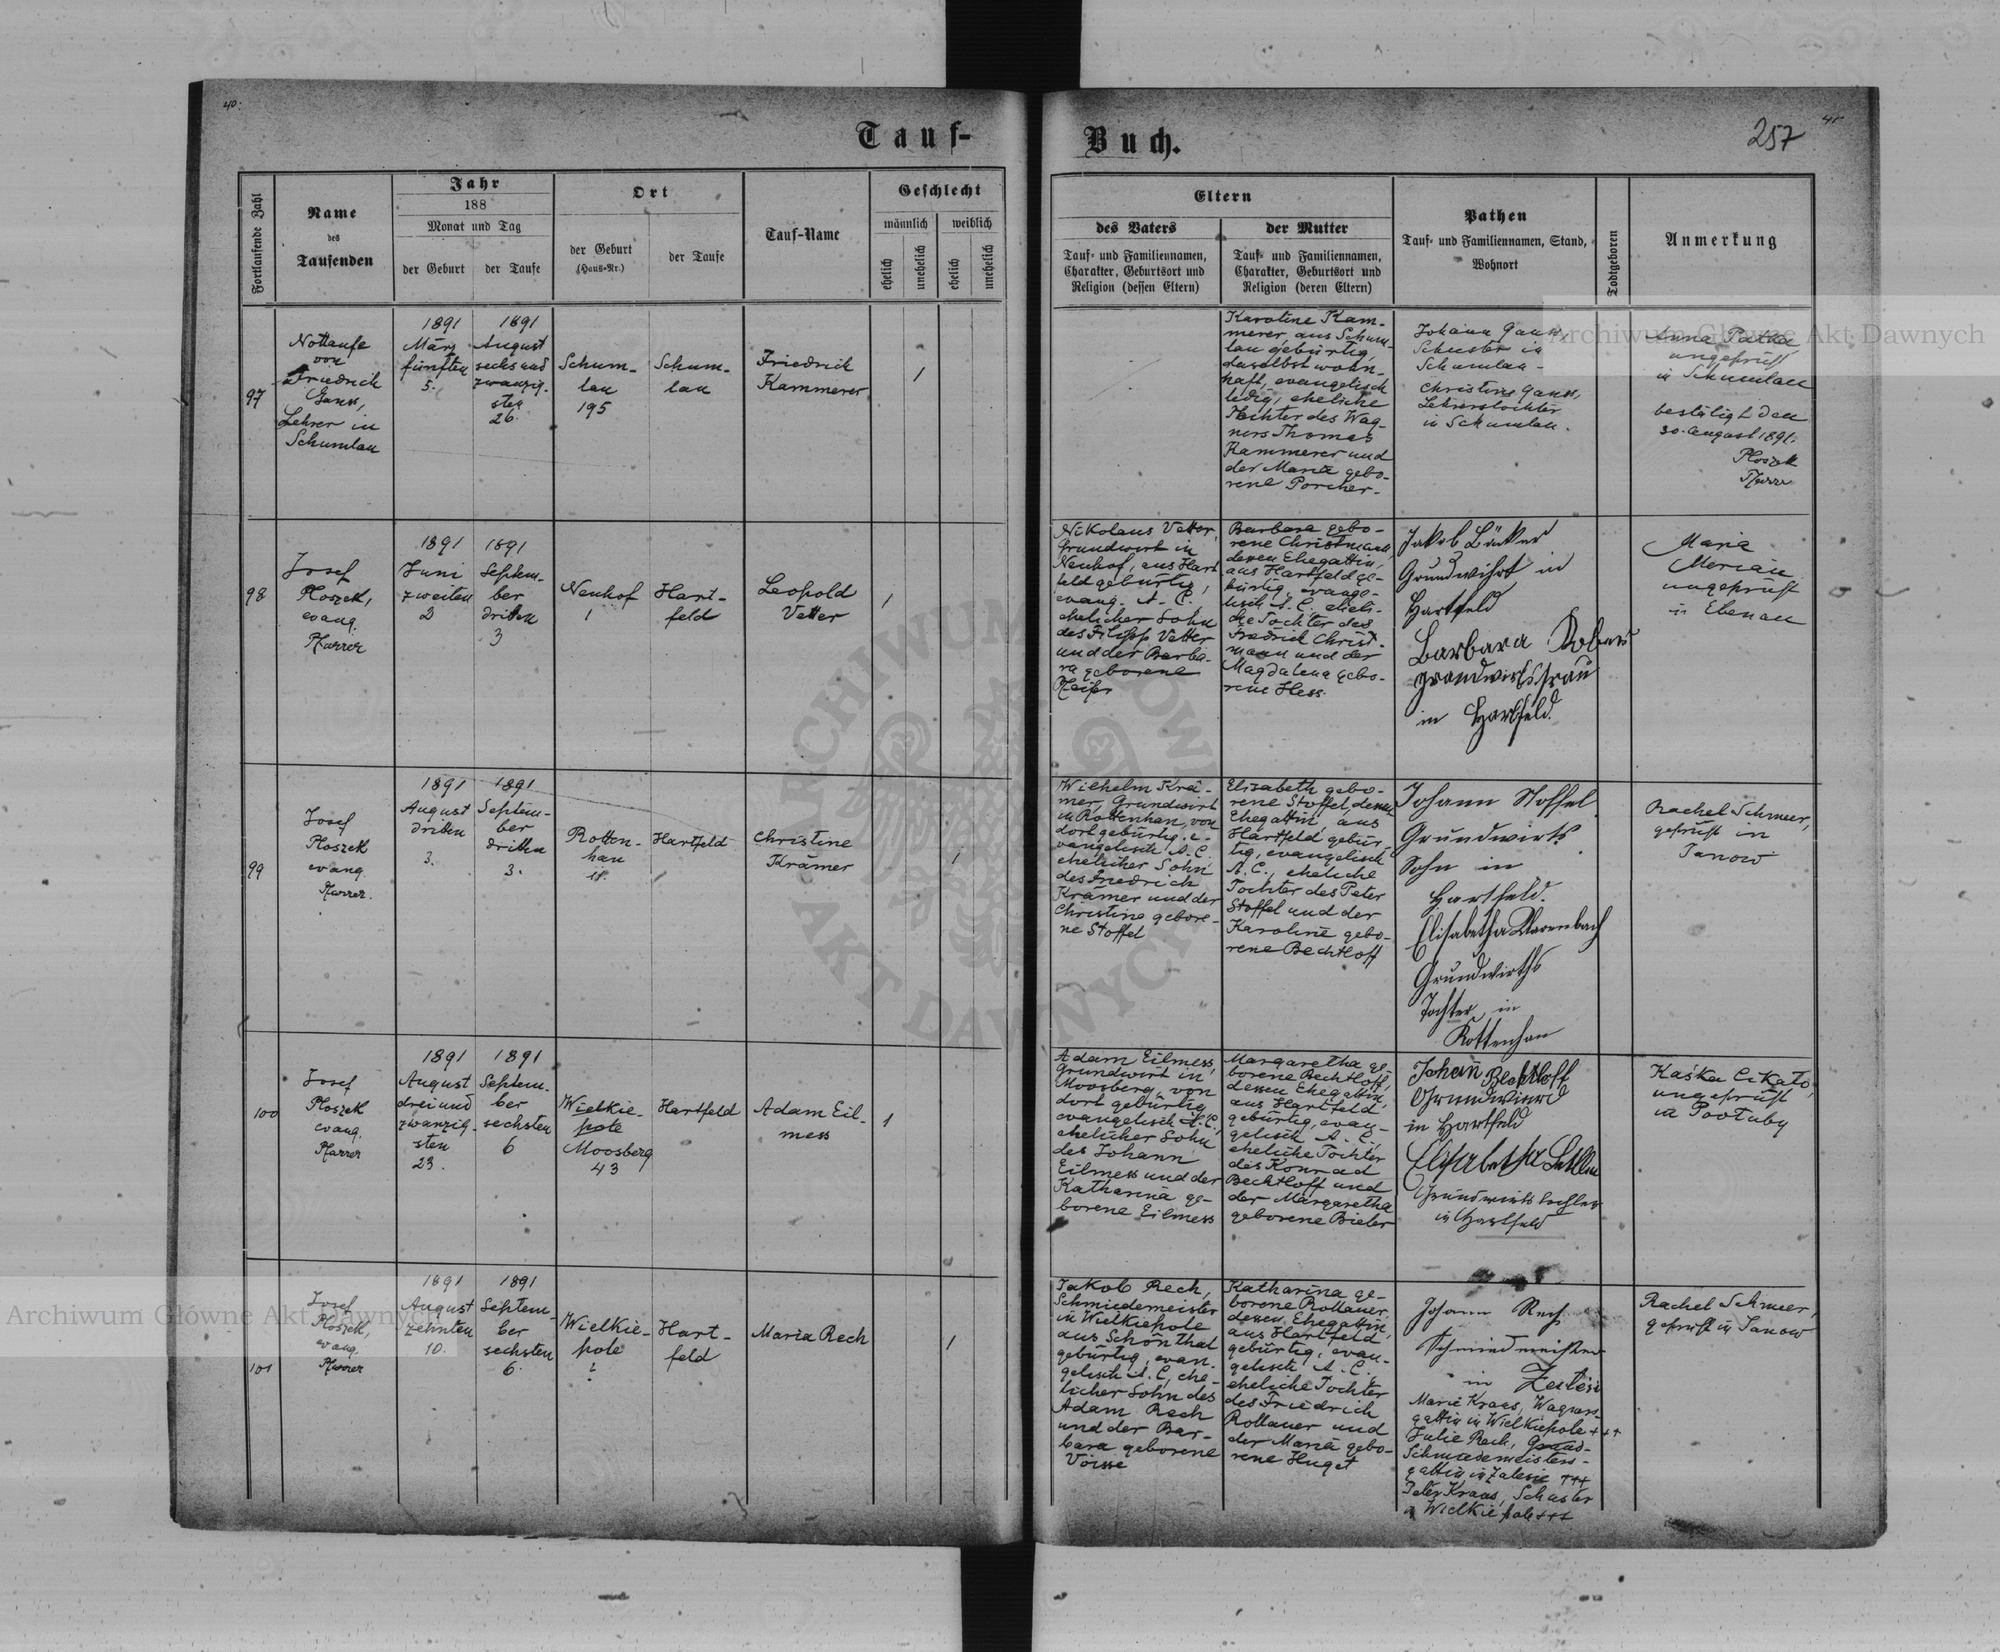 40.
Tauf-
Buch.
257
Fortlaufende Zahl
Name
des
Taufenden
Jahr
188
Monat und Tag
der Geburt
der Taufe
Ort
der Geburt
(Haus-Nr.)
der Taufe
Tauf-Name
Geschlecht
männlich
weiblich
ehelich
unehelich
ehelich
unehelich
Eltern
des Vaters
Tauf- und Familiennamen,
Charakter, Geburtsort und
Religion (dessen Eltern)
der Mutter
Tauf- und Familiennamen,
Charakter, Geburtsort und
Religion (deren Eltern)
Pathen
Tauf- und Familiennamen, Stand,
Wohnort
Todtgeboren
Anmerkung
97
Nottaufe
von
Friedrich
Gauss,
Lehrer in
Schumlau
1891
März
fünften
5.
1891
August
sechs und
zwanzig-
sten
26.
Schum-
lau
195
Schum-
lau
Friedrich
Kammerer
1
Karoline Kam-
merer, aus Schum-
lau gebürtig,
daselbst wohn-
haft, evangelisch
ledig, eheliche
Tochter des Wag-
ners Thomas
Kammerer und
der Maria gebo-
rene Porcher.
Johann Gauss,
Schuster in
Schumlau-
Christine Gauss,
Lehrerstochter
in Schumlau.
Anna Patka
ungeprüft
in Schumlau
bestätigt den
30. August 1891.
Ploszek
Pfarrer
98
Josef
Ploszek,
evang.
Pfarrer
1891
Juni
zweiten
2
1891
Septem-
ber
dritten
3
Neuhof
1
Hart-
feld
Leopold
Vetter
1
Nikolaus Vetter,
Grundwirt in
Neuhof, aus Hart
feld gebürtig,
evang. A. C.
ehelicher Sohn
des Filipp Vetter
und der Barba-
ra geborene
Barbara gebo-
rene Christmann,
dessen Ehegattin,
aus Hartfeld ge-
bürtig, evange-
lisch A. C. eheli-
che Tochter des
Friedrich Christ-
mann und der
Magdalena gebo-
rene Hess.
Jakob
Grundwirt in
Hartfeld
Barbara
Grundwirtsfrau
in Hartfeld
Maria
Merian
ungeprüft
in Ebenau
99
Josef
Ploszek
evang.
Pfarrer.
1891
August
dritten
3.
1891
Septem-
ber
dritten
3.
Rotten-
han
18.
Hartfeld
Christine
Krämer
1
Wilhelm Krä-
mer, Grundwirt
in Rottenhan, von
dort gebürtig, e-
vangelisch A. C.
ehelicher Sohn
des Friedrich
Krämer und der
Christine gebore-
ne Stoffel
Elisabeth gebo-
rene Stoffel, dessen
Ehegattin, aus
Hartfeld gebür-
tig, evangelisch
A. C., eheliche
Tochter des Peter
Stoffel und der
Karoline gebo-
rene Bechtloff
Johann Stoffel
Grundwirts
Sohn in
Hartfeld.
Elisabetha
Grundwirths
Tochter in
Rottenhan
Rachel Schmeer,
geprüft in
Janow
100
Josef
Ploszek
evang.
Pfarrer
1891
August
drei und
zwanzig-
sten
23.
1891
Septem-
ber
sechsten
6
Wielkie-
pole
Moosberg
43
Hartfeld
Adam Eil-
mess
1
Adam Eilmess,
Grundwirt in
Moosberg, von
dort gebürtig
evangelisch A. C.,
ehelicher Sohn
des Johann
Eilmess und der
Katharina ge-
borene Eilmess
Margaretha ge-
borene Bechtloff,
dessen Ehegattin,
aus Hartfeld
gebürtig, evan-
gelisch A. C.
eheliche Tochter
des Konrad
Bechtloff und
der Margaretha
geborene Bieler
Johann Bechtloff
Grundwierd
in Hartfeld
Elisabetha
Grundwirts tochter
in Hartfeld
Kaśka Cikało,
ungeprüft
in
101
Josef
Ploszek,
evang.
Pfarrer
1891
August
zehnten
10.
1891
Septem-
ber
sechsten
6.
Wielkie-
pole
Hart-
feld
Maria Rech
1
Jakob Rech,
Schmiedemeister
in Wielkiepole
aus Schönthal
gebürtig, evan-
gelisch A. C., ehe-
licher Sohn des
Adam Rech
und der Bar-
bara geborene
Voisse
Katharina ge-
borene Rollauer,
dessen Ehegattin,
aus Hartfeld
gebürtig, evan-
gelisch A. C.
eheliche Tochter
des Friedrich
Rollauer und
der Maria gebo-
rene Huget
Johann Rech
Schmiedmeister
in Zalesie
Marie Kraus, Wagners-
gattin in Wielkiepole +++
Julie Rech,
Schmiedemeisters-
gattin in Zalesie +++
Peter Kraus, Schuster
in Wielkiepole +++
Rachel Schmeer,
geprüft in Janow
Archiwum Główne Akt Dawnych
Archiwum Główne Akt Dawnych
ARCHIWUM GŁÓWNE AKT DAWNYCH